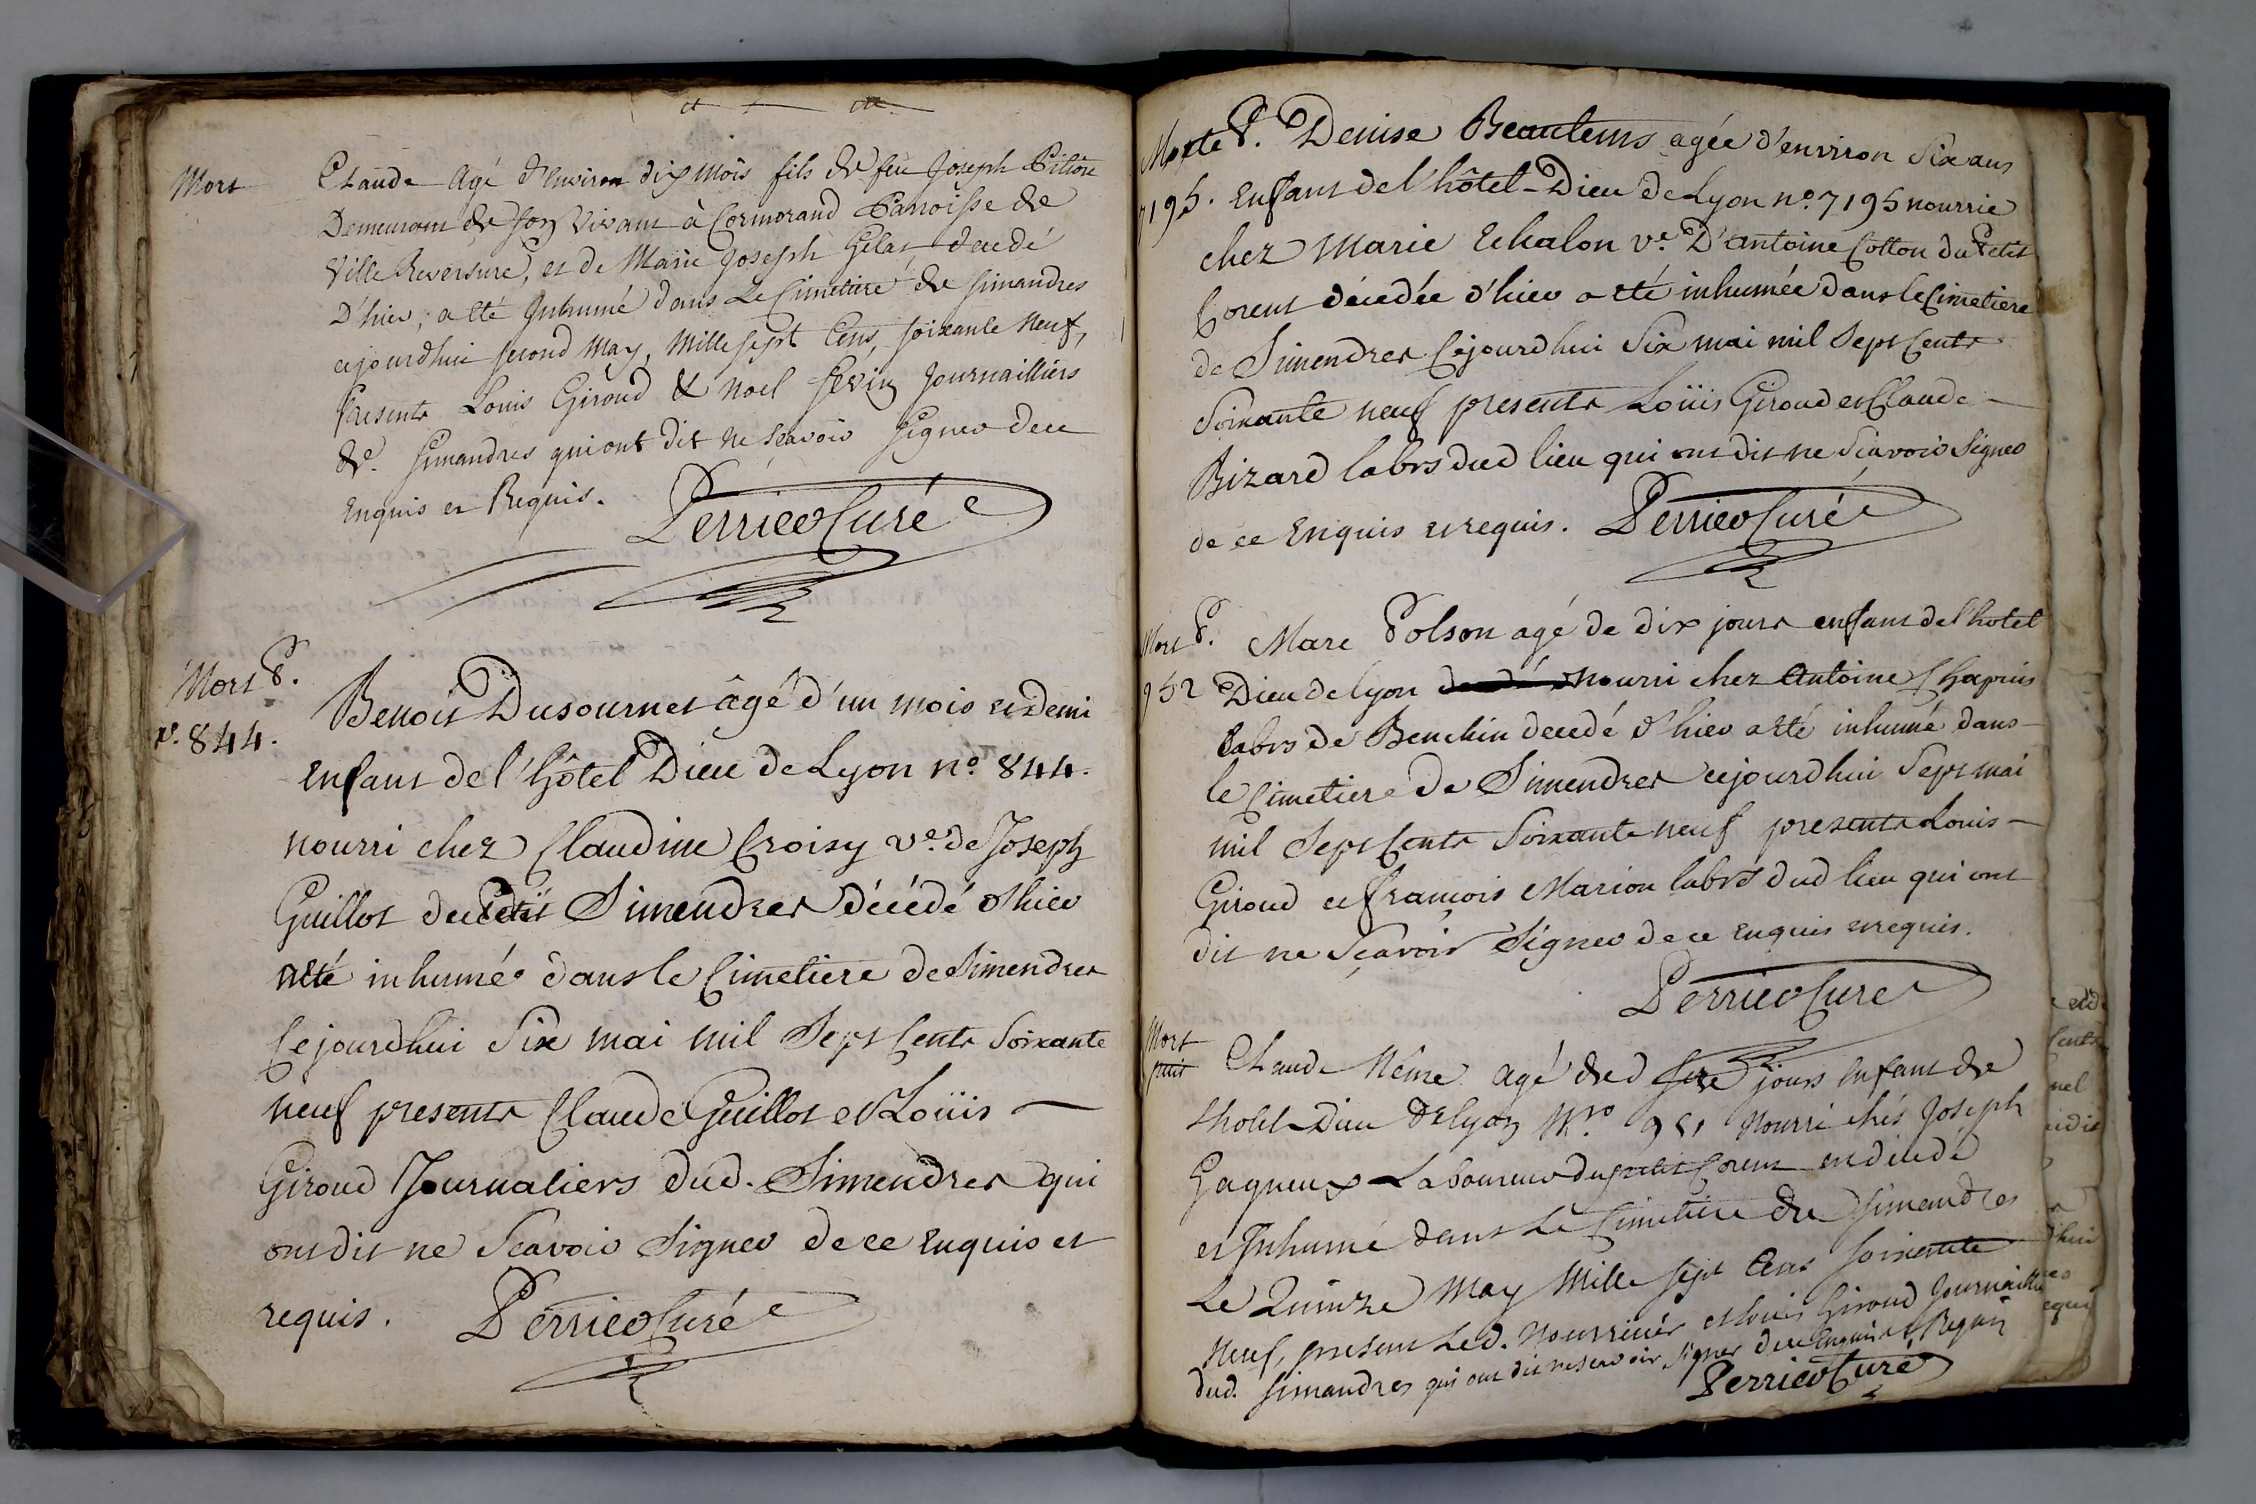 Mort
Claude Agé d'Environ dix mois fils de feu Joseph Pilion
Demeurant de son Vivant à Cormorand Parroisse de
Ville Reversure, et de Marie Joseph Gelas decedé
D'hier, a eté Inhumé dans Le Cimetiere de Simandres
cejourdhui second May, Mille sept Cens, soixante Neuf,
Presents Louis Giroud & Noel fevin Journailliers
de. Simandres qui ont dit ne sçavoir signer de ce
Enquis et Requis.
Perrier Curé
Mort P.
n°. 844.
Benoit Dusournet âgé d'un mois et Demi
enfant de l'hôtel Dieu de Lyon n°. 844.
nourri chez Claudine Croisy ve. de Joseph
Guillot du Petit Simendres décédé d'hier
a eté inhumé dans le Cimetiere de Simendres
Cejourdhui Six mai mil Sept Cents Soixante
neuf presents Claude Guillot et Loüis
Giroud Journaliers dud. Simendres qui
ont dit ne Scavoir Signer de ce enquis et
requis.
Perrier Curé
Morte P.
7195.
Denise Beautems agée d'environ Six ans
enfant de l'hôtel-Dieu de Lyon n°. 7195 nourrie
chez Marie Echalon ve. D'antoine Cotton du Petit
Corent décedée d'hier a eté inhumée dans le Cimetiere
de Simendres Cejourdhui Six mai mil Sept Cents
Soixante neuf presents Loüis Giroud et Claude
Bizard labrs dud lieu qui ont dit ne Sçavoir Signer
de ce enquis et requis.
Perrier Curé
Mort P.
952
Marc Polson agé de dix jours enfant de l'hotel
Dieu de lyon nourri chez Antoine Chapuis
labrs de Benchin decedé d'hier a eté inhumé dans
le Cimetiere de Simendres cejourdhui Sept mai
mil Sept Cents Soixante neuf presents Louis
Giroud et francois Marion labrs dud lieu qui ont
dit ne Sçavoir Signer de ce enquis et requis.
Perrier Curé
Mort
petit
Claude agé de jours Enfant de
Lhotel-Dieu De lyon Nro 951 Nourri chés Joseph
Gagneux Laboureur du petit Corent
et Inhumé dans Le Cimetiere de Simendres
Le Quinze May Mille sept Cens soixante
Neuf, present Led. Nourricier et louis Giroud Journaillier
dud. Simandres qui ont dit ne scavoir signer de ce Enquis et Requis
Perrier Curé